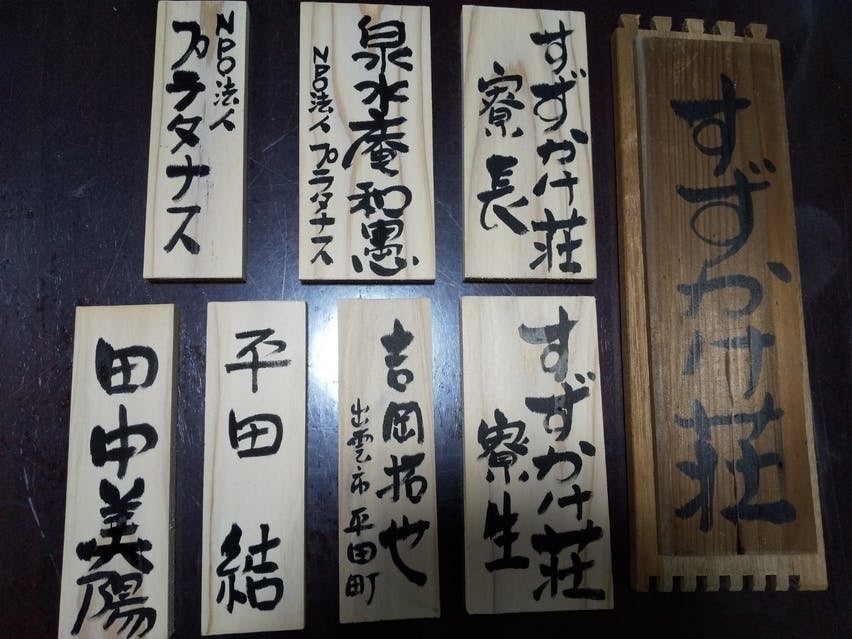 すずかけ荘
すずかけ荘
寮長
泉水庵和愚
NPO法人プラタナス
NPO法人
プラタナス
すずかけ荘
寮生
吉岡拓也
出雲市平田町
平田結
田中美陽